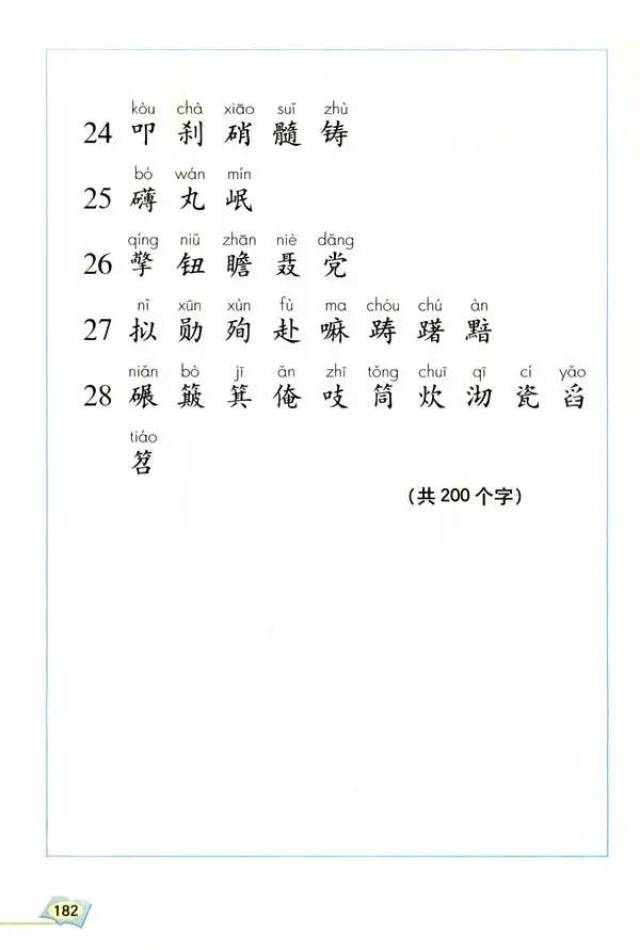 kòu chà xiāo suǐ zhù
24 叩 刹 硝 髓 铸
bó wán mín
25 礴 丸 岷
qíng niǔ zhān niè dǎng
26 擎 钮 瞻 聂 党
nǐ xūn xùn fù ma chóu chú àn
27 拟 勋 殉 赴 嘛 踌 躇 黯
niǎn bò jī ǎn zhī tǒng chuī qī cí yǎo
28 碾 簸 箕 俺 吱 筒 炊 沏 瓷 舀
tiáo
笤
（共 200 个字）
182